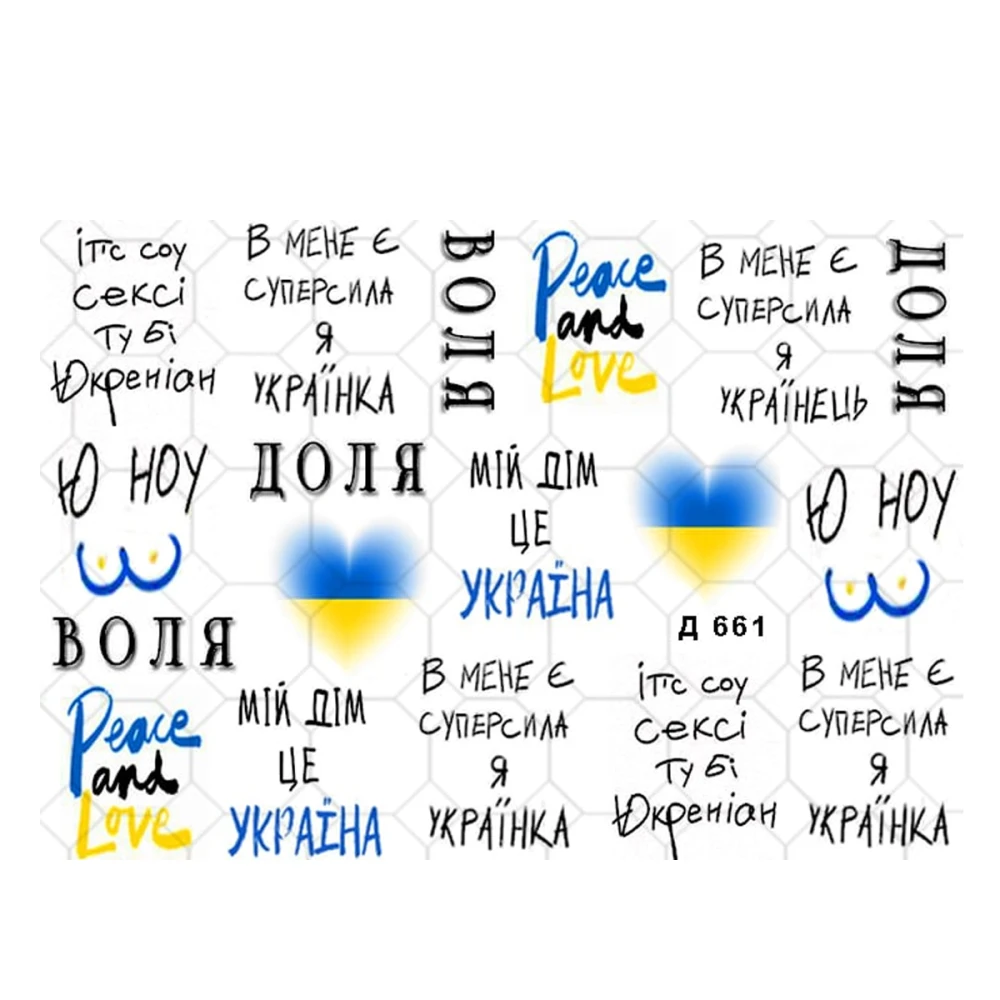 іттс соу
сексі
ту бі
Юкреніан
В МЕНЕ Є
СУПЕРСИЛА
Я
УКРАЇНКА
ВОЛЯ
Peace
and
Love
В МЕНЕ Є
СУПЕРСИЛА
Я
УКРАЇНЕЦЬ
ДОЛЯ
Ю НОУ
ДОЛЯ
МІЙ ДІМ
ЦЕ
УКРАЇНА
Ю НОУ
ВОЛЯ
Д 661
Peace
and
Love
МІЙ ДІМ
ЦЕ
УКРАЇНА
В МЕНЕ Є
СУПЕРСИЛА
Я
УКРАЇНКА
іттс соу
сексі
ту бі
Юкреніан
В МЕНЕ Є
СУПЕРСИЛА
Я
УКРАЇНКА